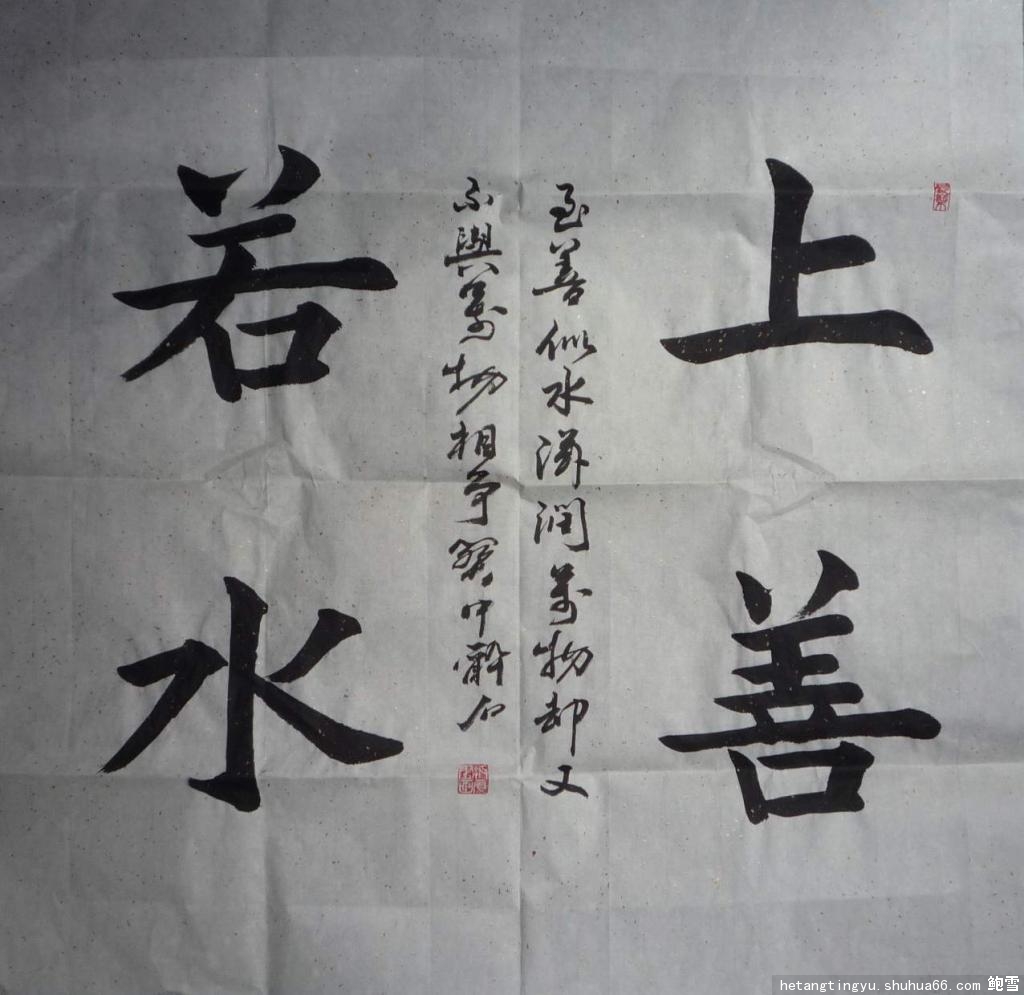 上善
若水
至善似水滋润萬物却又
不與萬物相争癸中霽石
hetangtingyu.shuhua66.com 鲍雪